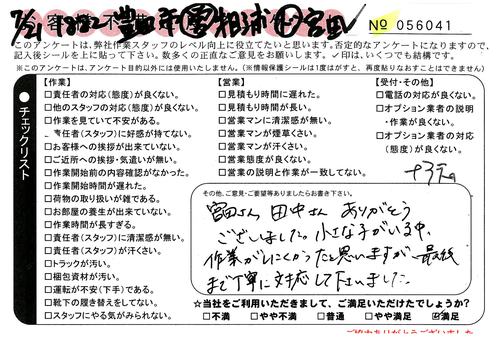 7/21
豊田市
相浦
宮田
№ 056041
このアンケートは、弊社作業スタッフのレベル向上に役立てたいと思います。否定的なアンケートになりますので、
記入後シールを上に貼って下さい。数多くの正直なご意見をお願いします。✓印は、いくつでも結構です。
※このアンケートは、アンケート目的以外には使用いたしません。（※情報保護シールは1度はがすと、再度貼りなおすことはできません）
●チェックリスト
【作業】
□責任者の対応（態度）が良くない。
□他のスタッフの対応（態度）が良くない。
□作業を見ていて不安がある。
責任者（スタッフ）に好感が持てない。
□お客様への挨拶が出来ていない。
□ご近所への挨拶・気遣いが無い。
□作業開始前の内容確認がなかった。
□作業開始時間が遅れた。
□荷物の取り扱いが雑である。
□お部屋の養生が出来ていない。
□作業時間が長すぎる。
□責任者（スタッフ）に清潔感が無い。
□責任者（スタッフ）が汗くさい。
□トラックが汚い。
□梱包資材が汚い。
□運転が不安（下手）である。
□靴下の履き替えをしてない。
□スタッフにやる気がみられない。
【営業】
□見積もり時間に遅れた。
□見積もり時間が長い。
□営業マンに清潔感が無い。
□営業マンが煙草くさい。
□営業マンが汗くさい。
□営業態度が良くない。
□営業の説明と作業が一致してない。
【受付・その他】
□電話の対応が良くない。
□オプション業者の説明
・作業が良くない。
□オプション業者の対応
（態度）が良くない。
その他、ご意見・ご要望等ありましたらお書き下さい。
宮田さん 田中さん ありがとう
ございました。小さな子がいる中、
作業がしにくかったと思いますが 最後
まで丁寧に対応して下さいました。
☆当社をご利用いただきまして、ご満足いただけたでしょうか？
□不満 □やや不満 □普通 □やや満足 ☑満足
ご協力ありがとうございました